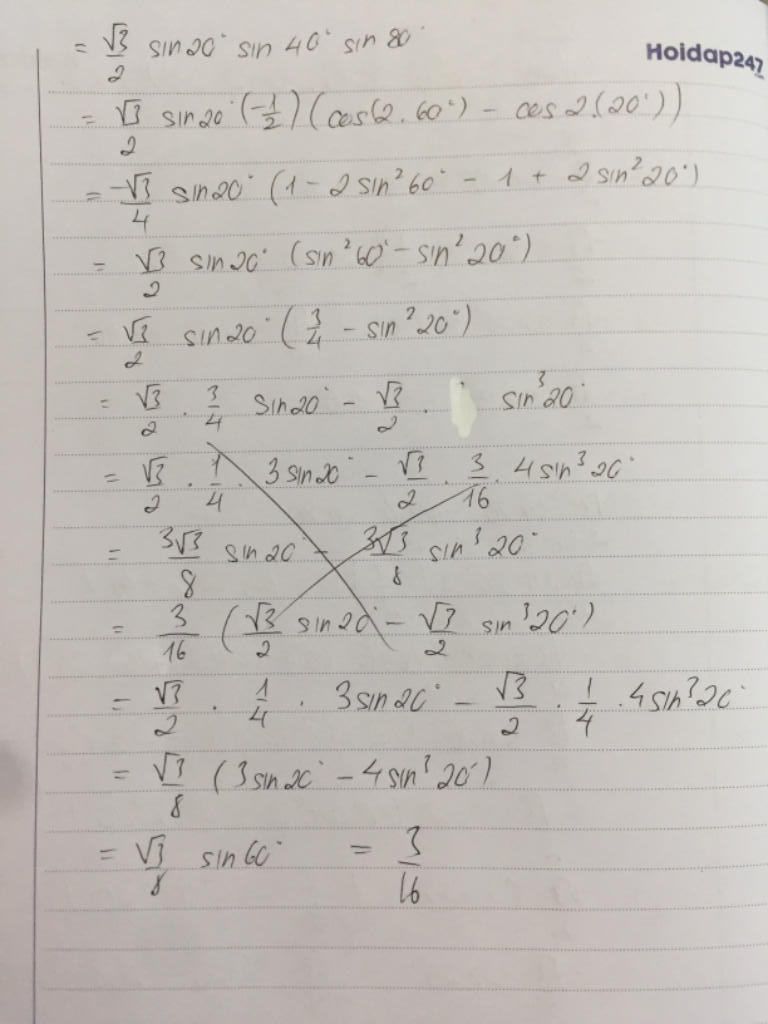 Hoidap247
= √3/2 sin20° sin 40° sin 80°
= √3/2 sin20° (-1/2) (cos(2.60°) - cos 2.(20°))
= -√3/4 sin20° (1 - 2sin²60° - 1 + 2sin²20°)
= √3/2 sin20° (sin²60° - sin²20°)
= √3/2 sin20° (3/4 - sin²20°)
= √3/2 . 3/4 sin20° - √3/2 . sin³20°
= √3/2 . 1/4 . 3sin20° - √3/2 . 3/16 . 4sin³20°
= 3√3/8 sin20° - 3√3/8 sin³20°
= 3/16 (√3/2 sin20° - √3/2 sin³20°)
= √3/2 . 1/4 . 3sin20° - √3/2 . 1/4 . 4sin³20°
= √3/8 (3sin20° - 4sin³20°)
= √3/8 sin60° = 3/16